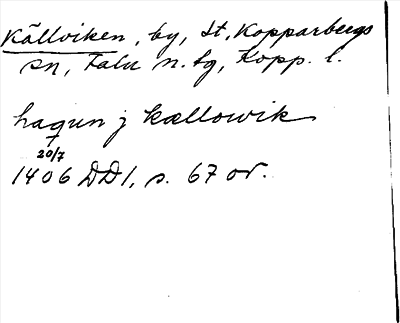 Källviken, by, St. Kopparbergs
sn, Falu n. tg, Kopp. l.
haqun j kællowik
20/7
1406 DD1, s. 67 or.